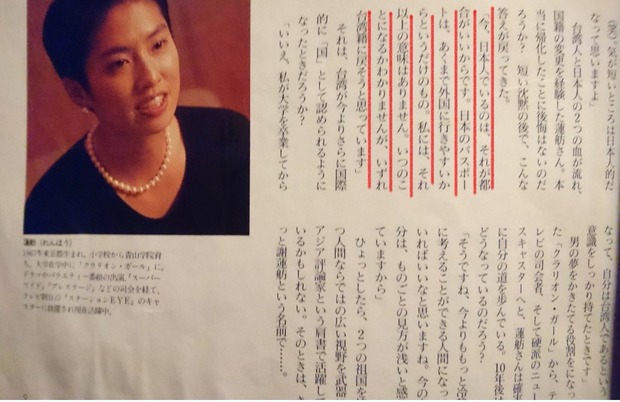 (笑)。気が短いところは日本人的だ
なって思いますよ」
台湾人と日本人の2つの血が流れ、
国籍の変更を経験した蓮舫さん。本
当に帰化したことに後悔はないのだ
ろうか? 短い沈黙の後で、こんな
答えが戻ってきた。
「今、日本人でいるのは、それが都
合がいいからです。日本のパスポー
トは、あくまで外国に行きやすいか
らというだけのもの。私には、それ
以上の意味はありません。いつのこ
とになるかわかりませんが、いずれ
台湾籍に戻そうと思っています」
それは、台湾が今よりさらに国際
的に「国」として認められるように
なったときだろうか?
「いいえ。私が大学を卒業してから
なって、自分は台湾人であるという
意識をしっかり持てたときです」
男の夢をかきたてる役割をになっ
た「クラリオン・ガール」から、テ
レビの司会者、そして硬派のニュー
スキャスターへと、蓮舫さんは確
に自分の道を歩んでいる。10年後
どうなっているのだろう?
「そうですね、今よりももっと冷
に考えることができる人間になっ
いればいいなと思いますね。今の
分は、ものごとの見方が浅いと感
ていますから」
ひょっとしたら、2つの祖国を
つ人間ならではの広い視野を武器
アジア評論家という肩書で活躍し
いるかもしれない。そのときは、き
っと謝蓮舫という名前で……。
蓮舫(れんほう)
1967年東京都生まれ。小学校から青山学院育
ち。大学在学中に「クラリオン・ガール」に。
ドラマやバラエティー番組の出演、「スーパー
ワイド」「プレステージ」などの司会を経て、
テレビ朝日の「ステーションEYE」のキャ
スターに抜擢され現在活躍中。